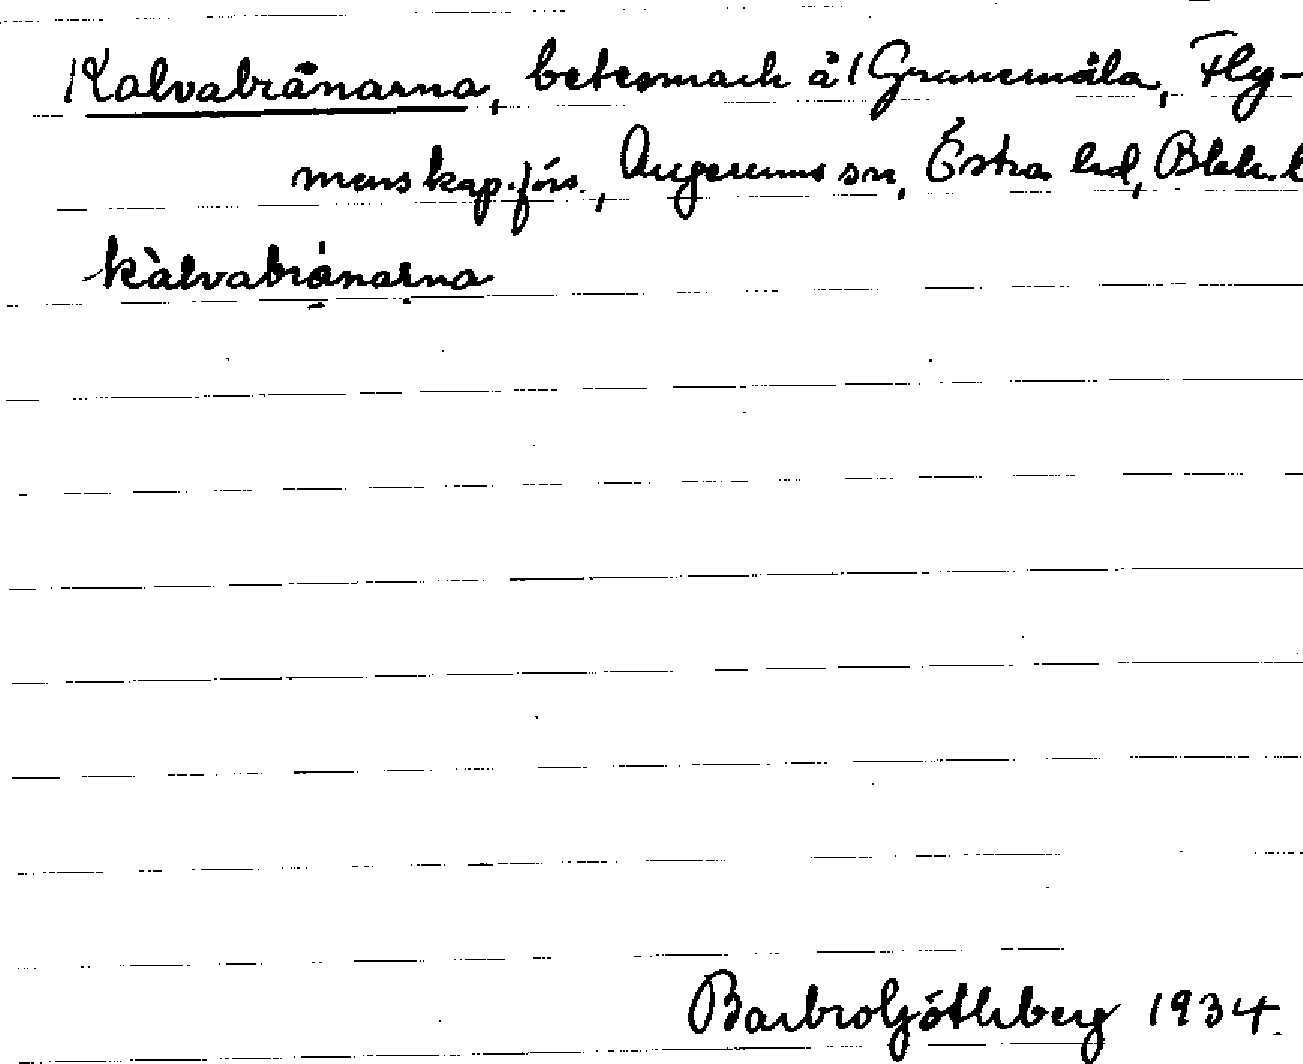 Kalvabränarna, betesmark å Granemåla, Fly-
mens kap.förs., Augerums sn, Östra hd, Blek. l
kàlvabránarna
Barbro Göthberg 1934.